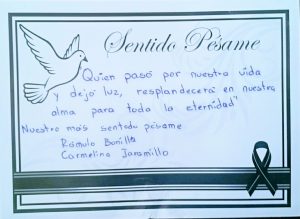 Sentido Pésame
"Quien pasó por nuestra vida
y dejó luz, resplandecerá en nuestra
alma para toda la eternidad"
Nuestro más sentido pésame
Rómulo Bonilla
Carmelina Jaramillo